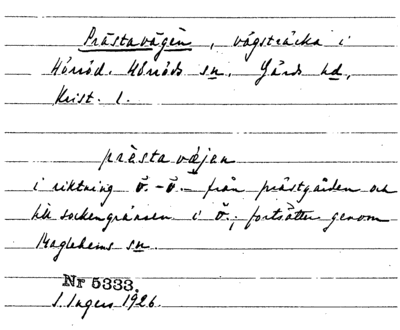 Prästavägen, vägsträcka i
Hörröd. Hörröds sn. Gärds hd,
Krist. l.
prästa væjen
i riktning v̄.-ö.- från prästgården och
till sockengränsen i ö.; fortsätter genom
Maglehems sn.
Nr 5333.
I. Ingers 1926.